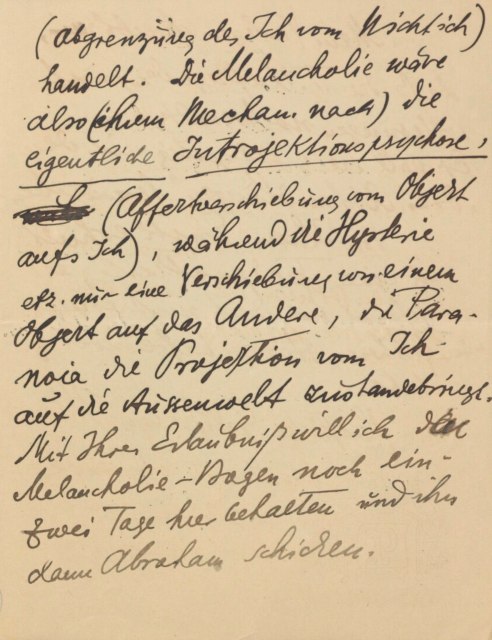 (Abgrenzung des Ich vom Nichtich)
handelt. Die Melancholie wäre
also (ihrem Mechan. nach) die
eigentliche Introjektionspsychose,
(Affektverschiebung vom Objekt
aufs Ich), während die Hysterie
etz. nur eine Verschiebung von einem
Objekt auf das Andere, die Para-
noia die Projektion vom Ich
auf die Aussenwelt zustandebringt.
Mit Ihrer Erlaubniß will ich den
Melancholie-Bogen noch ein-
zwei Tage hier behalten und ihn
dann Abraham schicken.